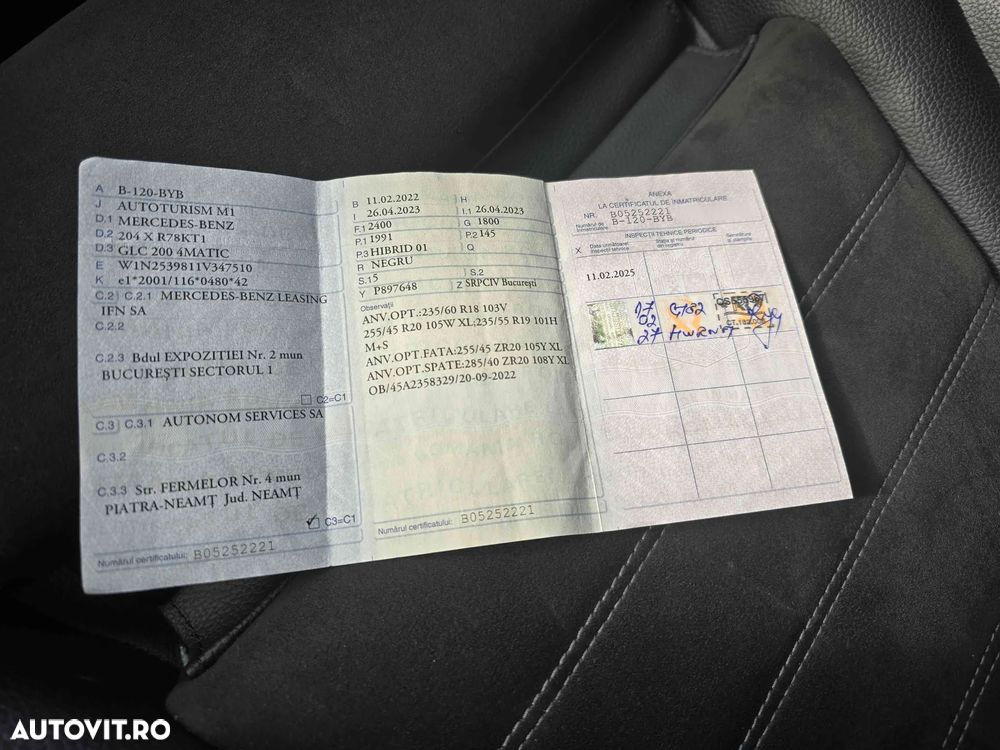 A B-120-BYB
J AUTOTURISM M1
D.1 MERCEDES-BENZ
D.2 204 X R78KT1
D.3 GLC 200 4MATIC
E W1N2539811V347510
K e1*2001/116*0480*42
C.2 C.2.1 MERCEDES-BENZ LEASING
IFN SA
C.2.2
C.2.3 Bdul EXPOZITIEI Nr. 2 mun
BUCUREŞTI SECTORUL 1
C2=C1
C.3 C.3.1 AUTONOM SERVICES SA
C.3.2
C.3.3 Str. FERMELOR Nr. 4 mun
PIATRA-NEAMŢ Jud. NEAMŢ
C3=C1
Numărul certificatului: B05252221
B 11.02.2022 H
I 26.04.2023 I.1 26.04.2023
F.1 2400 G 1800
P.1 1991 P.2 145
P.3 HIBRID 01 Q
R NEGRU
S.1 5 S.2
Y P897648 Z SRPCIV Bucureşti
Observaţii
ANV.OPT.:235/60 R18 103V
255/45 R20 105W XL;235/55 R19 101H
M+S
ANV.OPT.FATA:255/45 ZR20 105Y XL
ANV.OPT.SPATE:285/40 ZR20 108Y XL
OB/45A2358329/20-09-2022
Numărul certificatului: B05252221
ANEXA
LA CERTIFICATUL DE INMATRICULARE
NR. B05252221
Numărul de înmatriculare B-120-BYB
INSPECŢII TEHNICE PERIODICE
X Data următoarei inspecţii tehnice Staţia şi numărul din registru Semnătura şi ştampila
11.02.2025
17 CT82
02
27
AUTOVIT.RO